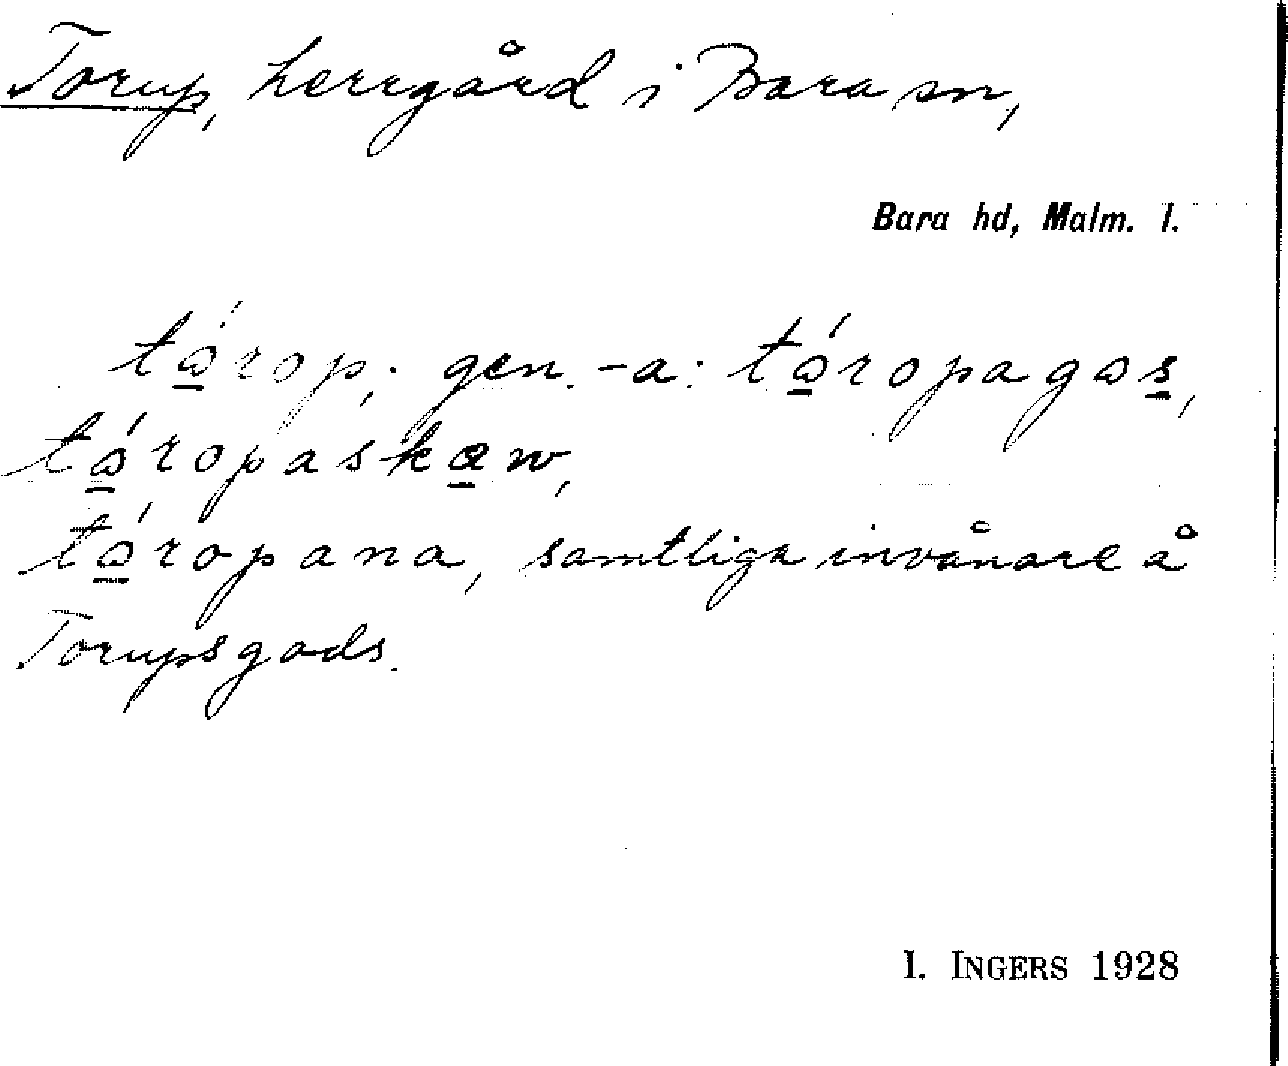 Torup, herrgård i Bara sn,
Bara hd, Malm. l.
tɷ̲́rop; gen. -a: tɷ̲́ropagɷs̲,
tɷ̲́ropaskæ̲w,
tɷ̲́ropana, samtliga invånare å
Torupsgods.
I. INGERS 1928